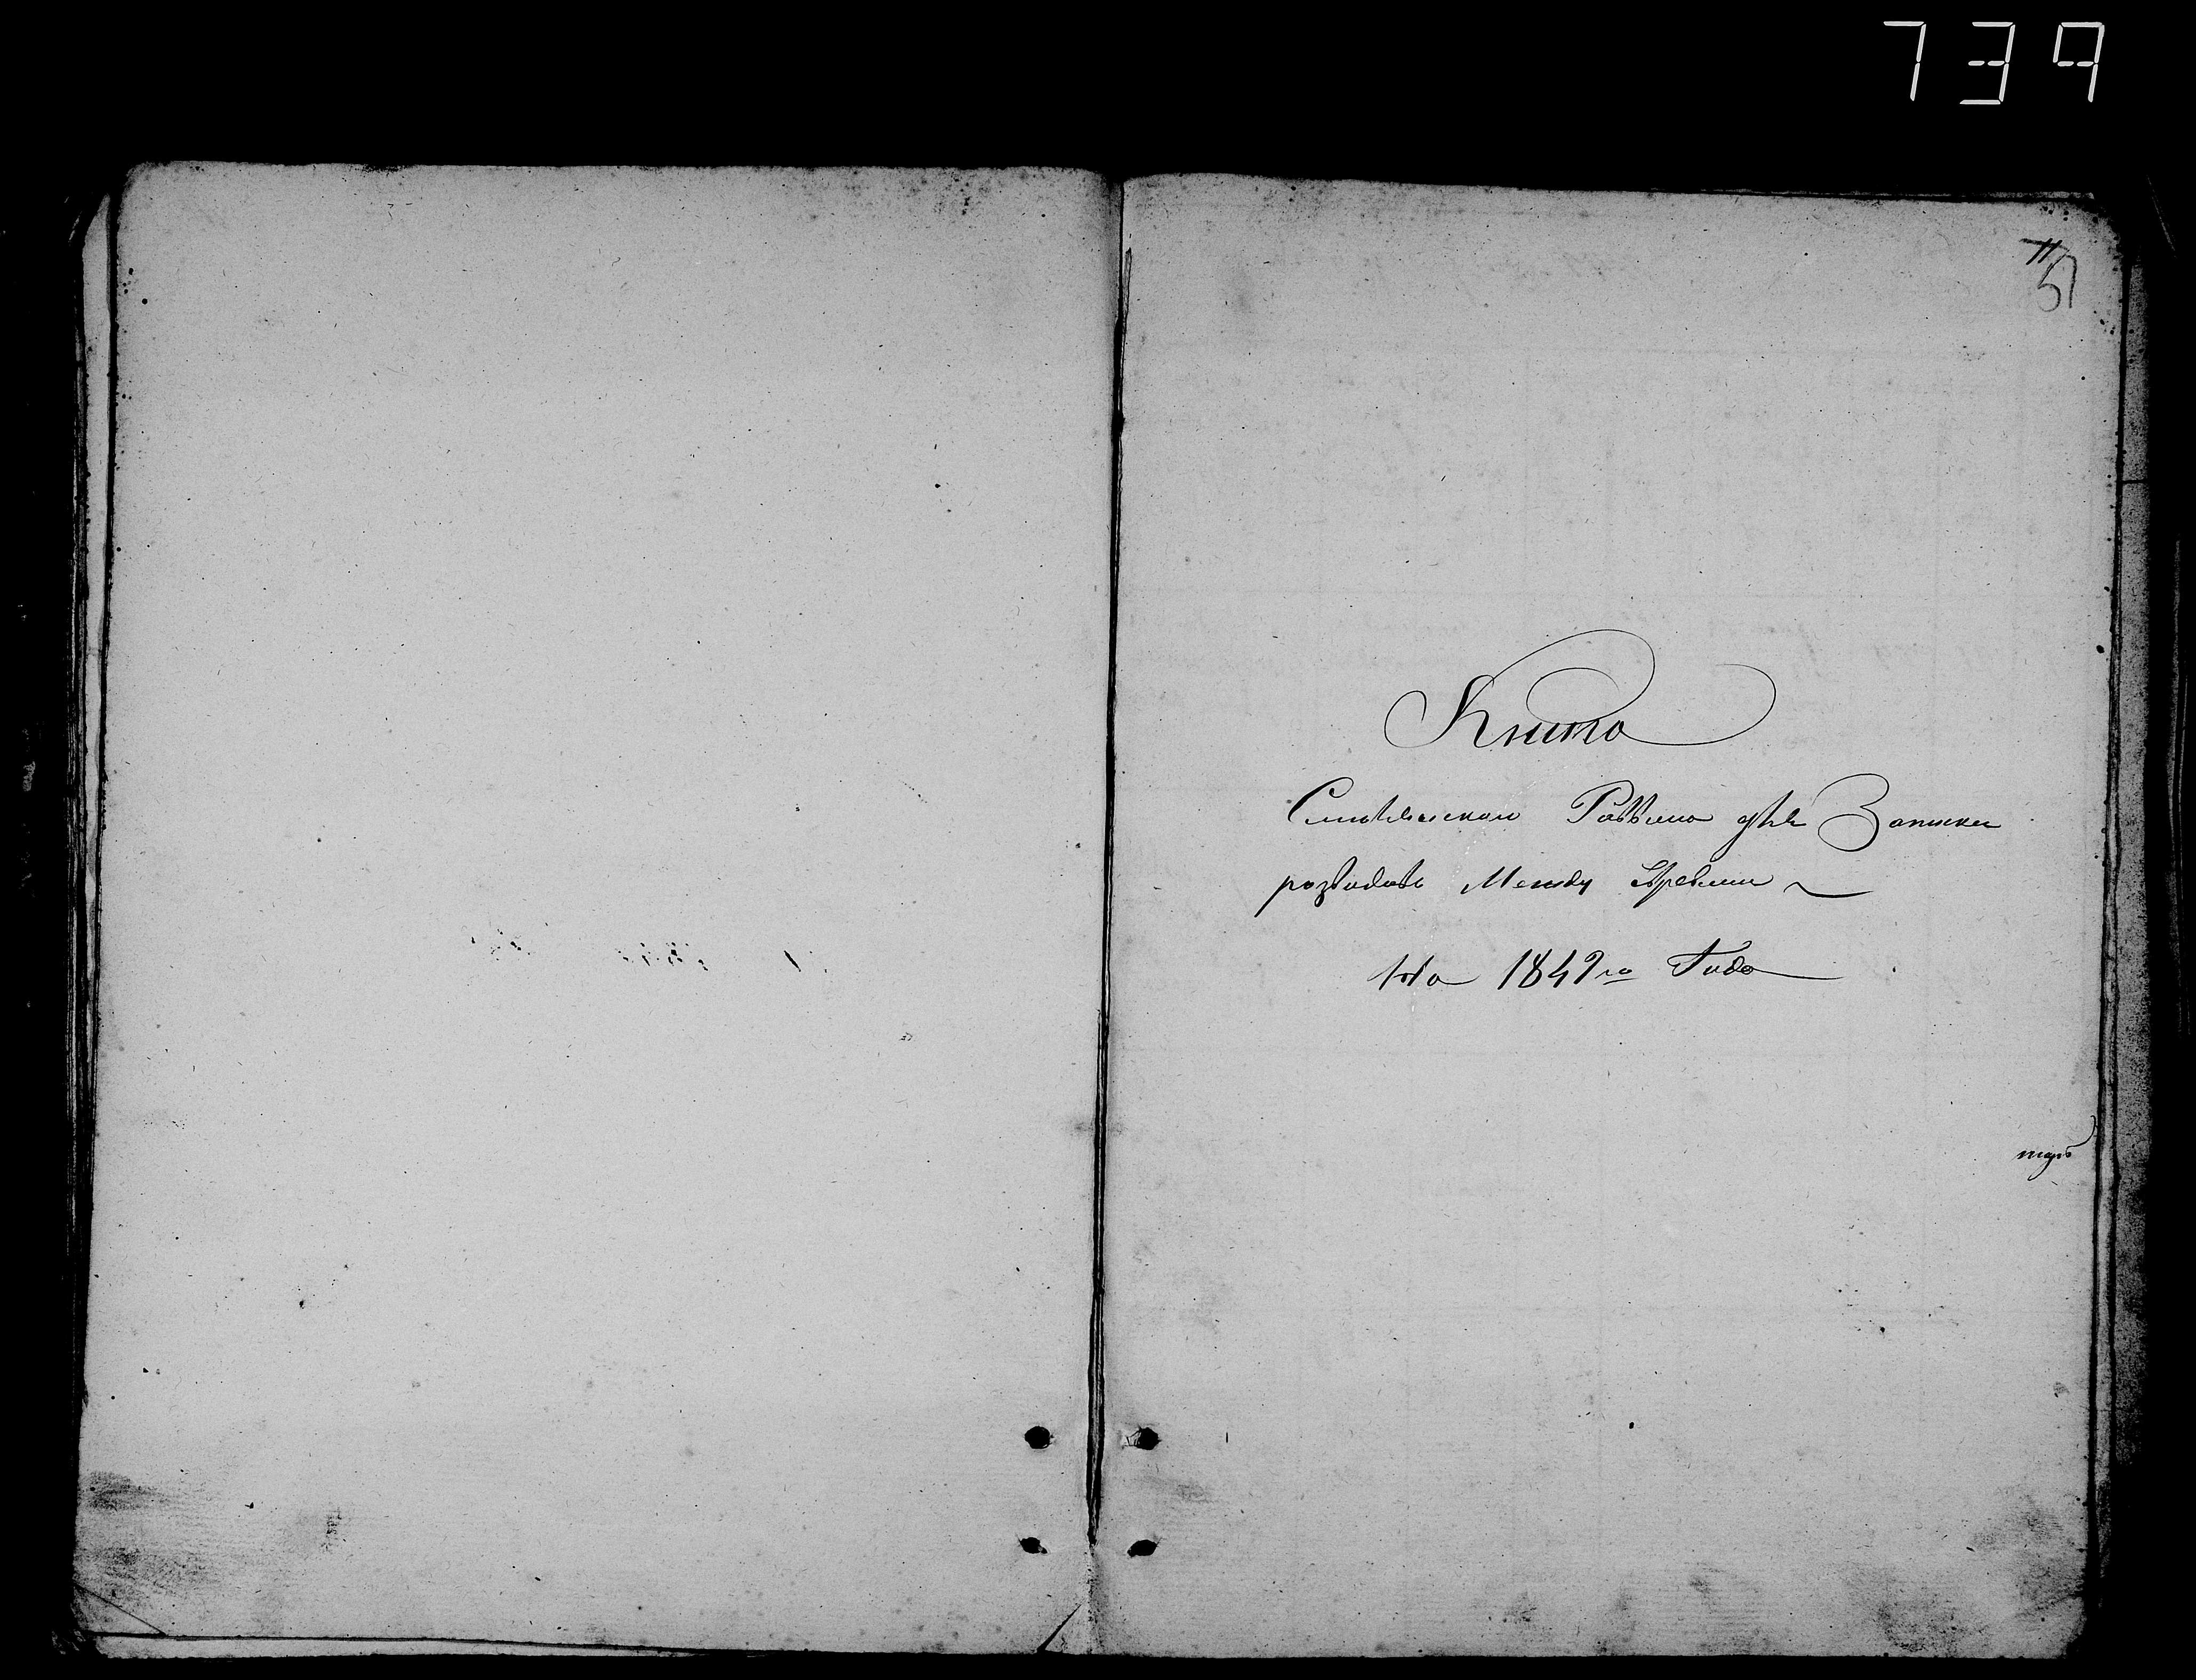 739
51
Книга
Смѣлянскаго Раввина для Записки
разводовъ Между Евреями
На 1849го Года